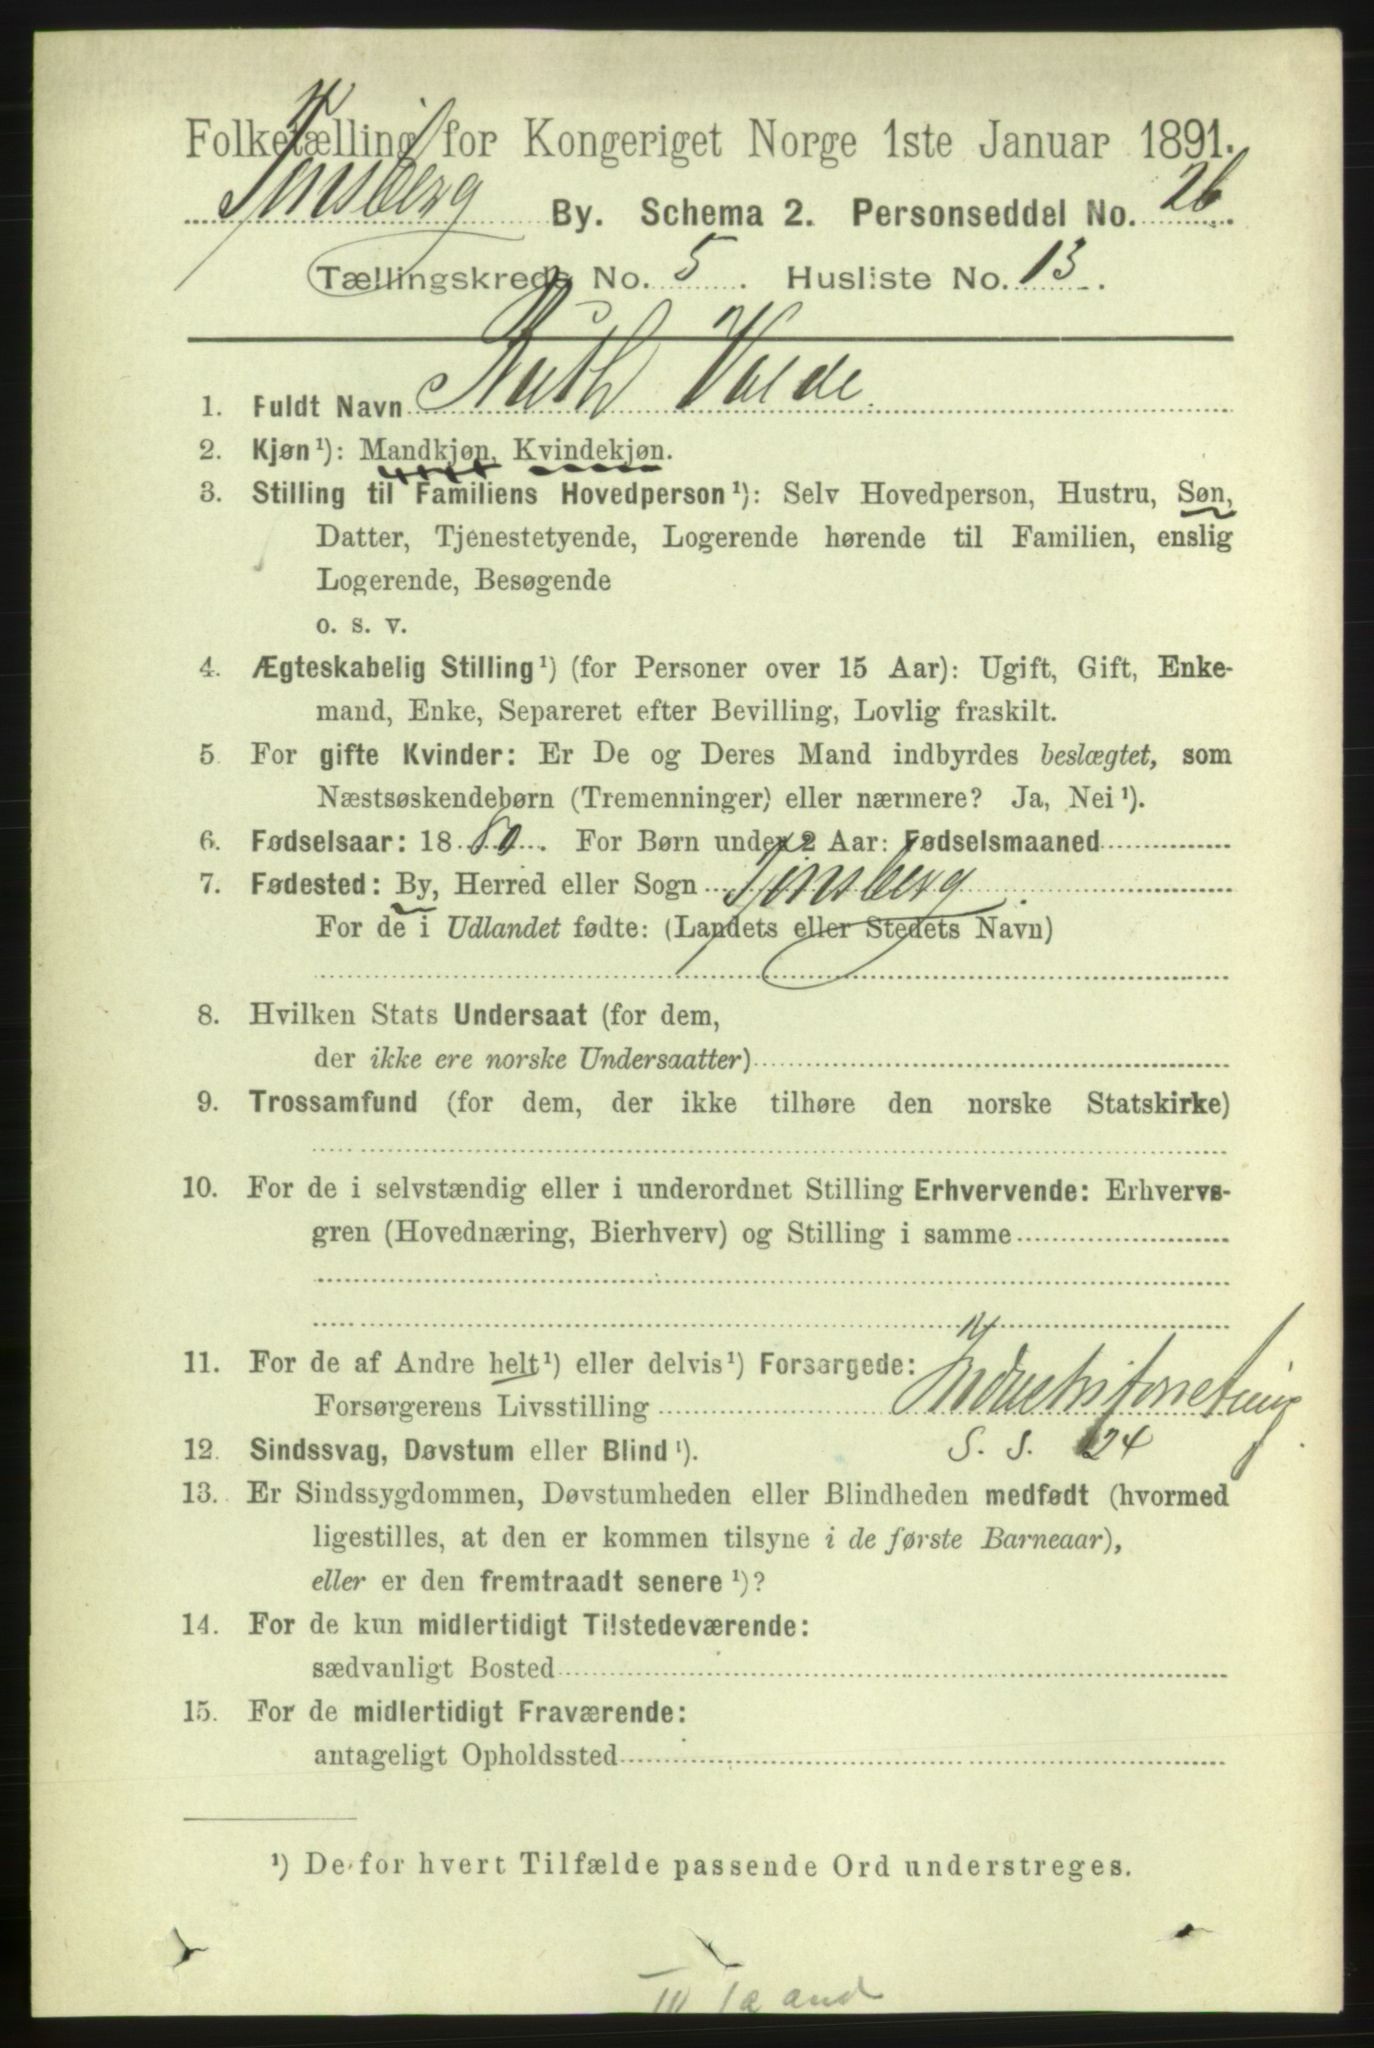 Folketælling for Kongeriget Norge 1ste Januar 1891.
Tønsberg By. Schema 2. Personseddel No. 26
Tællingskreds No. 5. Husliste No. 13.
1. Fuldt Navn Ruth Volde.
2. Kjøn ¹): Mandkjøn, Kvindekjøn.
3. Stilling til Familiens Hovedperson ¹): Selv Hovedperson, Hustru, Søn,
Datter, Tjenestetyende, Logerende hørende til Familien, enslig
Logerende, Besøgende
o. s. v.
4. Ægteskabelig Stilling ¹) (for Personer over 15 Aar): Ugift, Gift, Enke-
mand, Enke, Separeret efter Bevilling, Lovlig fraskilt.
5. For gifte Kvinder: Er De og Deres Mand indbyrdes beslægtet, som
Næstsøskendebørn (Tremenninger) eller nærmere? Ja, Nei ¹).
6. Fødselsaar: 1880. For Børn under 2 Aar: Fødselsmaaned
7. Fødested: By, Herred eller Sogn Tønsberg.
For de i Udlandet fødte: (Landets eller Stedets Navn)
8. Hvilken Stats Undersaat (for dem,
der ikke ere norske Undersaatter)
9. Trossamfund (for dem, der ikke tilhøre den norske Statskirke)
10. For de i selvstændig eller i underordnet Stilling Erhvervende: Erhvervs-
gren (Hovednæring, Bierhverv) og Stilling i samme
11. For de af Andre helt ¹) eller delvis ¹) Forsørgede:
Forsørgerens Livsstilling Industriforretning
12. Sindssvag, Døvstum eller Blind ¹). S. S. 24
13. Er Sindssygdommen, Døvstumheden eller Blindheden medfødt (hvormed
ligestilles, at den er kommen tilsyne i de første Barneaar),
eller er den fremtraadt senere ¹)?
14. For de kun midlertidigt Tilstedeværende:
sædvanligt Bosted
15. For de midlertidigt Fraværende:
antageligt Opholdssted
¹) De for hvert Tilfælde passende Ord understreges.